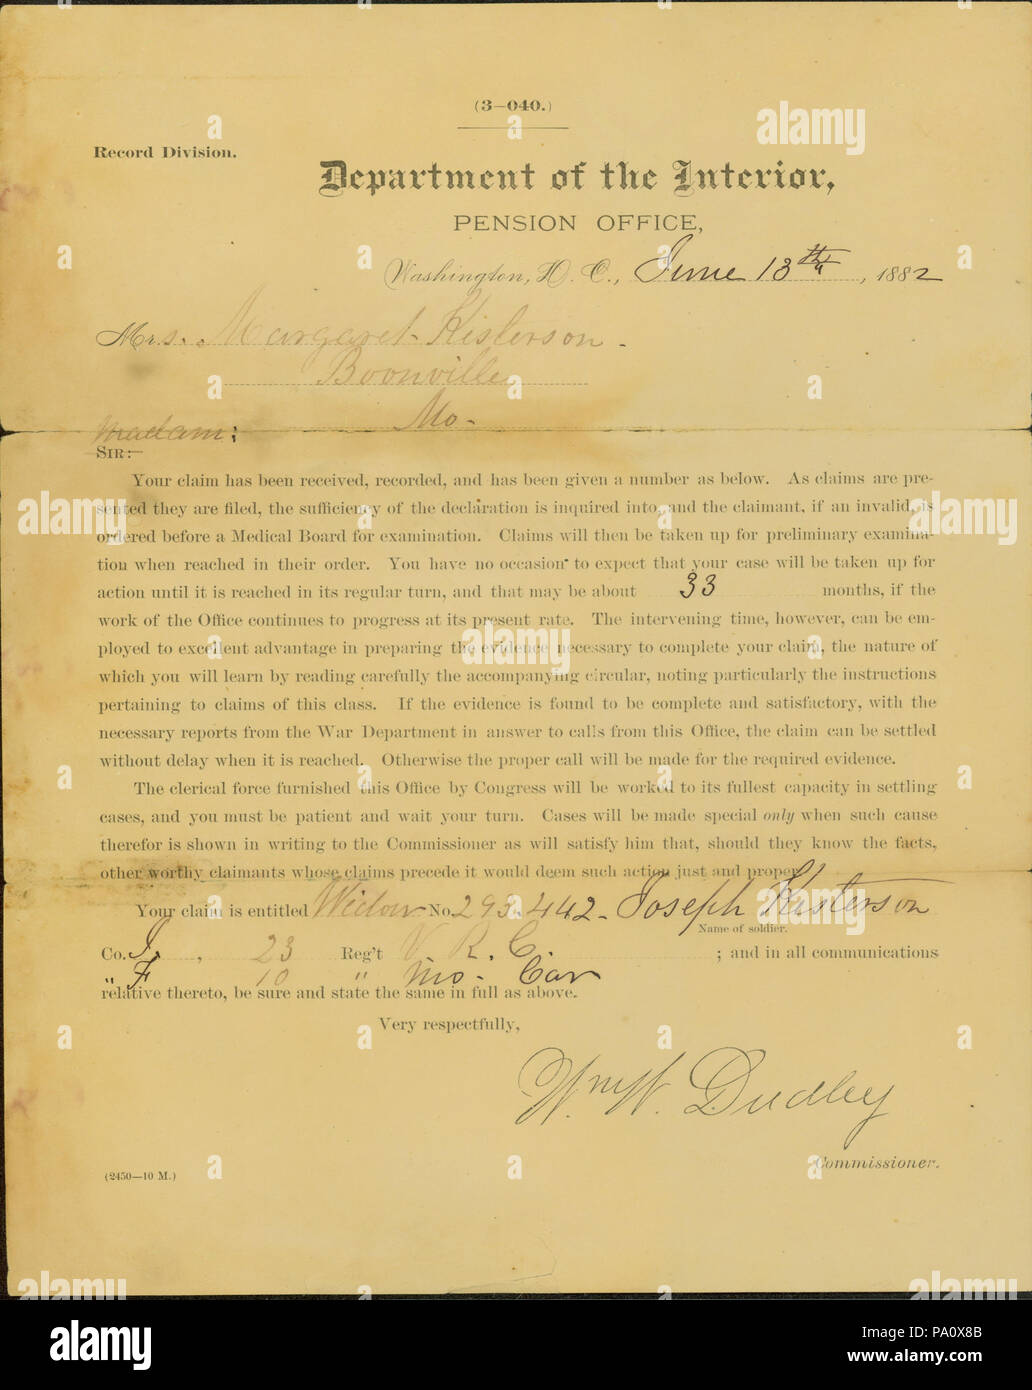 (3—040.)
Record Division.
Department of the Interior,
PENSION OFFICE,
Washington, D. C., June 13th, 1882
Mrs. Margaret Kisterson.
Boonville
Mo.
Madam:
SIR:—
Your claim has been received, recorded, and has been given a number as below. As claims are pre-
sented they are filed, the sufficiency of the declaration is inquired into, and the claimant, if an invalid, is
ordered before a Medical Board for examination. Claims will then be taken up for preliminary examina-
tion when reached in their order. You have no occasion to expect that your case will be taken up for
action until it is reached in its regular turn, and that may be about 33 months, if the
work of the Office continues to progress at its present rate. The intervening time, however, can be em-
ployed to excellent advantage in preparing the evidence necessary to complete your claim, the nature of
which you will learn by reading carefully the accompanying circular, noting particularly the instructions
pertaining to claims of this class. If the evidence is found to be complete and satisfactory, with the
necessary reports from the War Department in answer to calls from this Office, the claim can be settled
without delay when it is reached. Otherwise the proper call will be made for the required evidence.
The clerical force furnished this Office by Congress will be worked to its fullest capacity in settling
cases, and you must be patient and wait your turn. Cases will be made special only when such cause
therefor is shown in writing to the Commissioner as will satisfy him that, should they know the facts,
other worthy claimants whose claims precede it would deem such action just and proper.
Your claim is entitled Widow No. 293.442- Joseph Kisterson
Name of soldier.
Co. I, 23 Reg't V. R. C. ; and in all communications
" F 10 " Mo. Cav
relative thereto, be sure and state the same in full as above.
Very respectfully,
Wm W. Dudley
Commissioner.
(2450—10 M.)
alamy
Image ID: PA0X8B
www.alamy.com